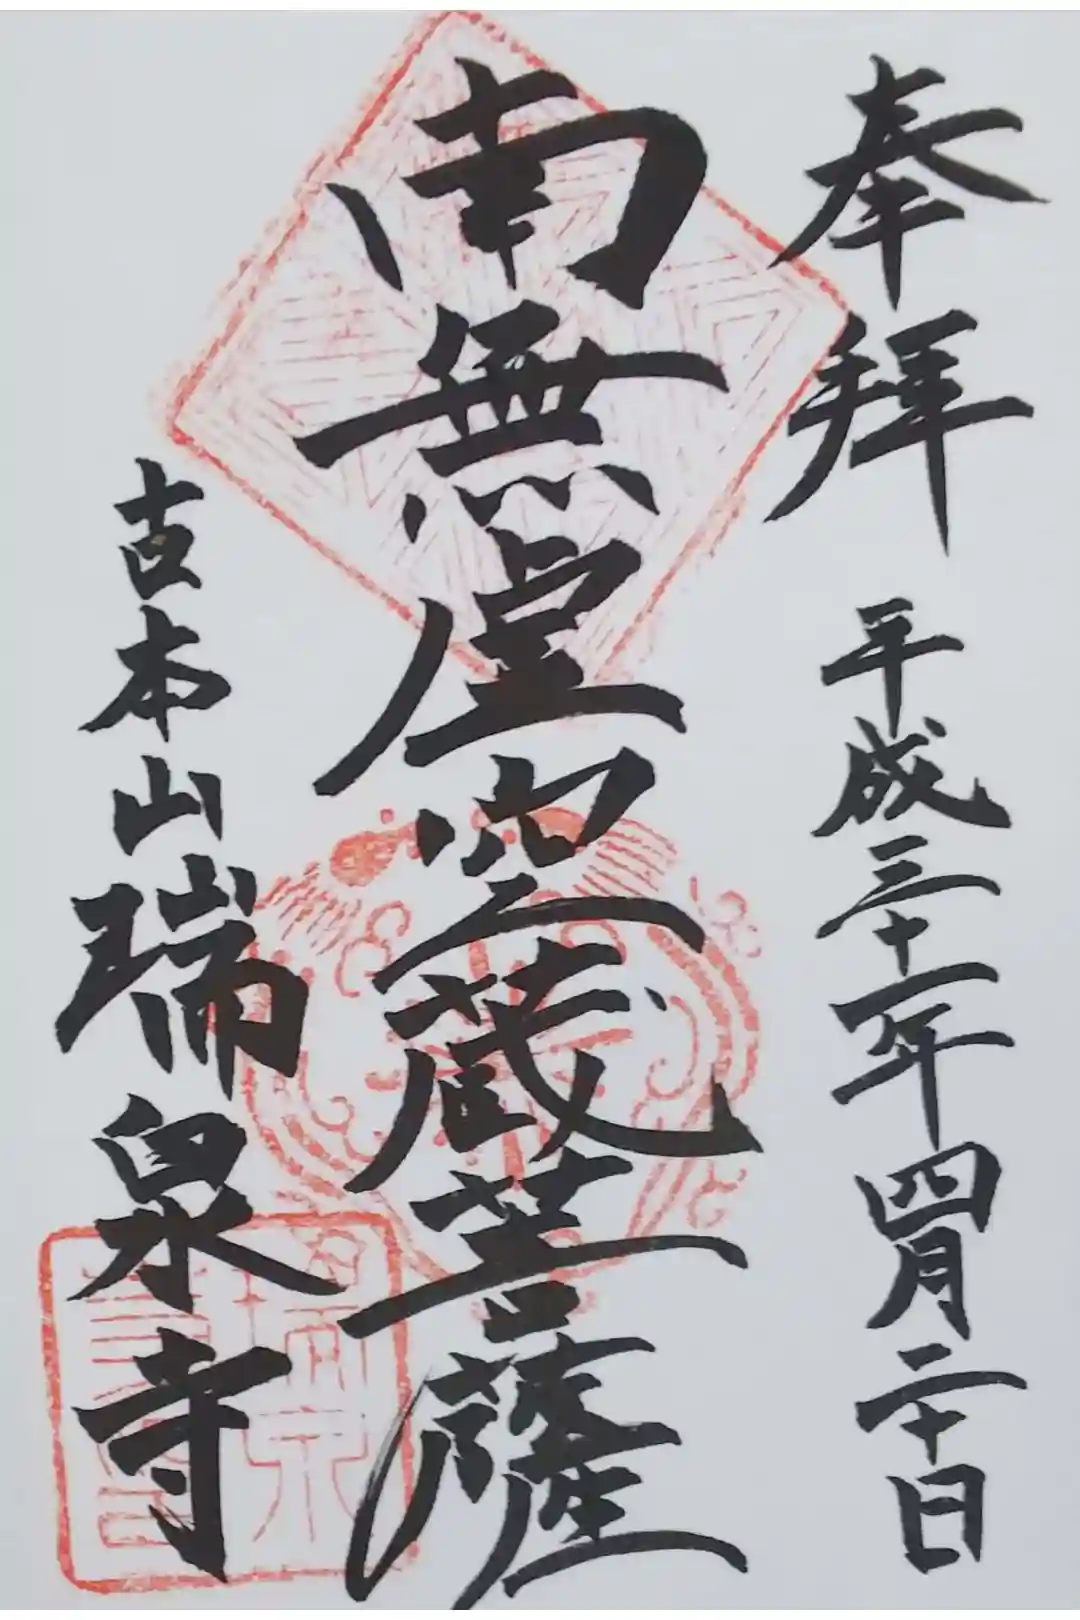 奉拜 平成三十一年四月二十日
南無虚空蔵菩薩
古本山瑞泉寺